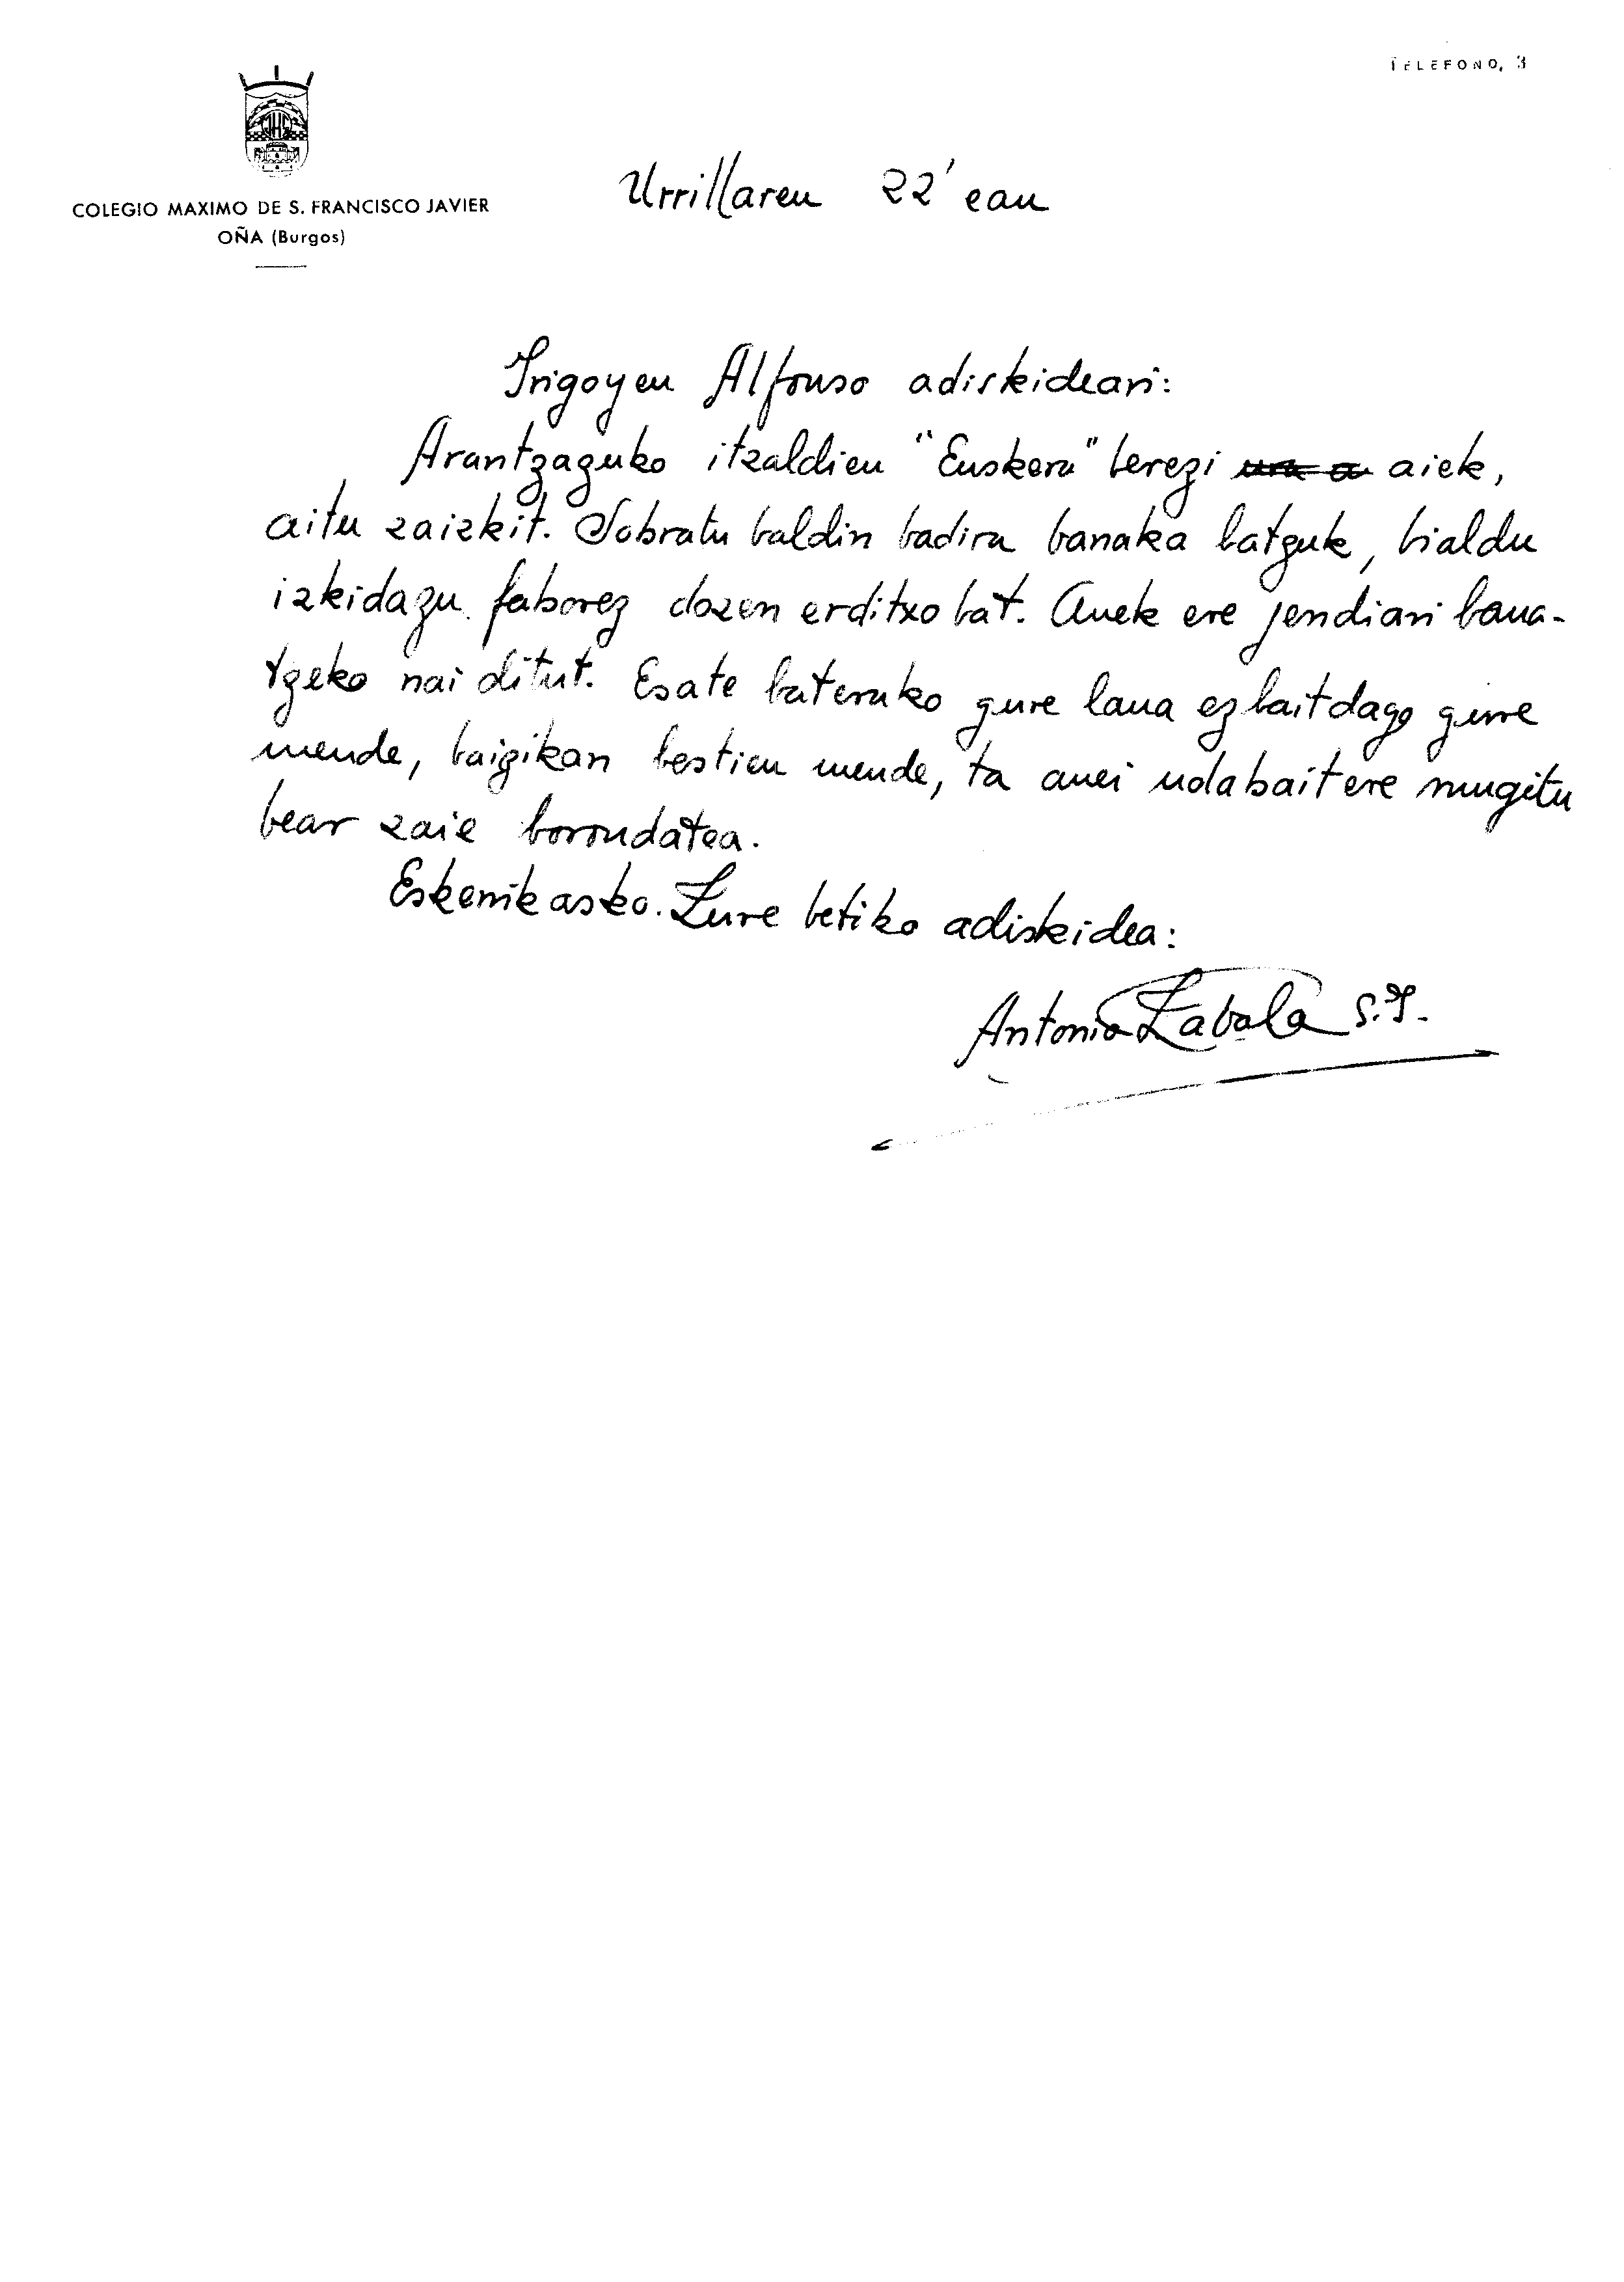 TELEFONO, 3
JHS
COLEGIO MAXIMO DE S. FRANCISCO JAVIER
OÑA (Burgos)
Urrillaren 22'ean
Irigoyen Alfonso adiskideari:
Arantzazuko itzaldien "Euskera" berezi aiek,
aitu zaizkit. Sobratu baldin badira banaka batzuk, bialdu
izkidazu faborez dozen erditxo bat. Auek ere jendiari bana-
tzeko nai ditut. Esate baterako gure lana ezbaitdago gure
mende, baizikan bestien mende, ta auei nolabait ere mugitu
bear zaie borondatea.
Eskerrik asko. Zure betiko adiskidea:
Antonio Zabala S.J.